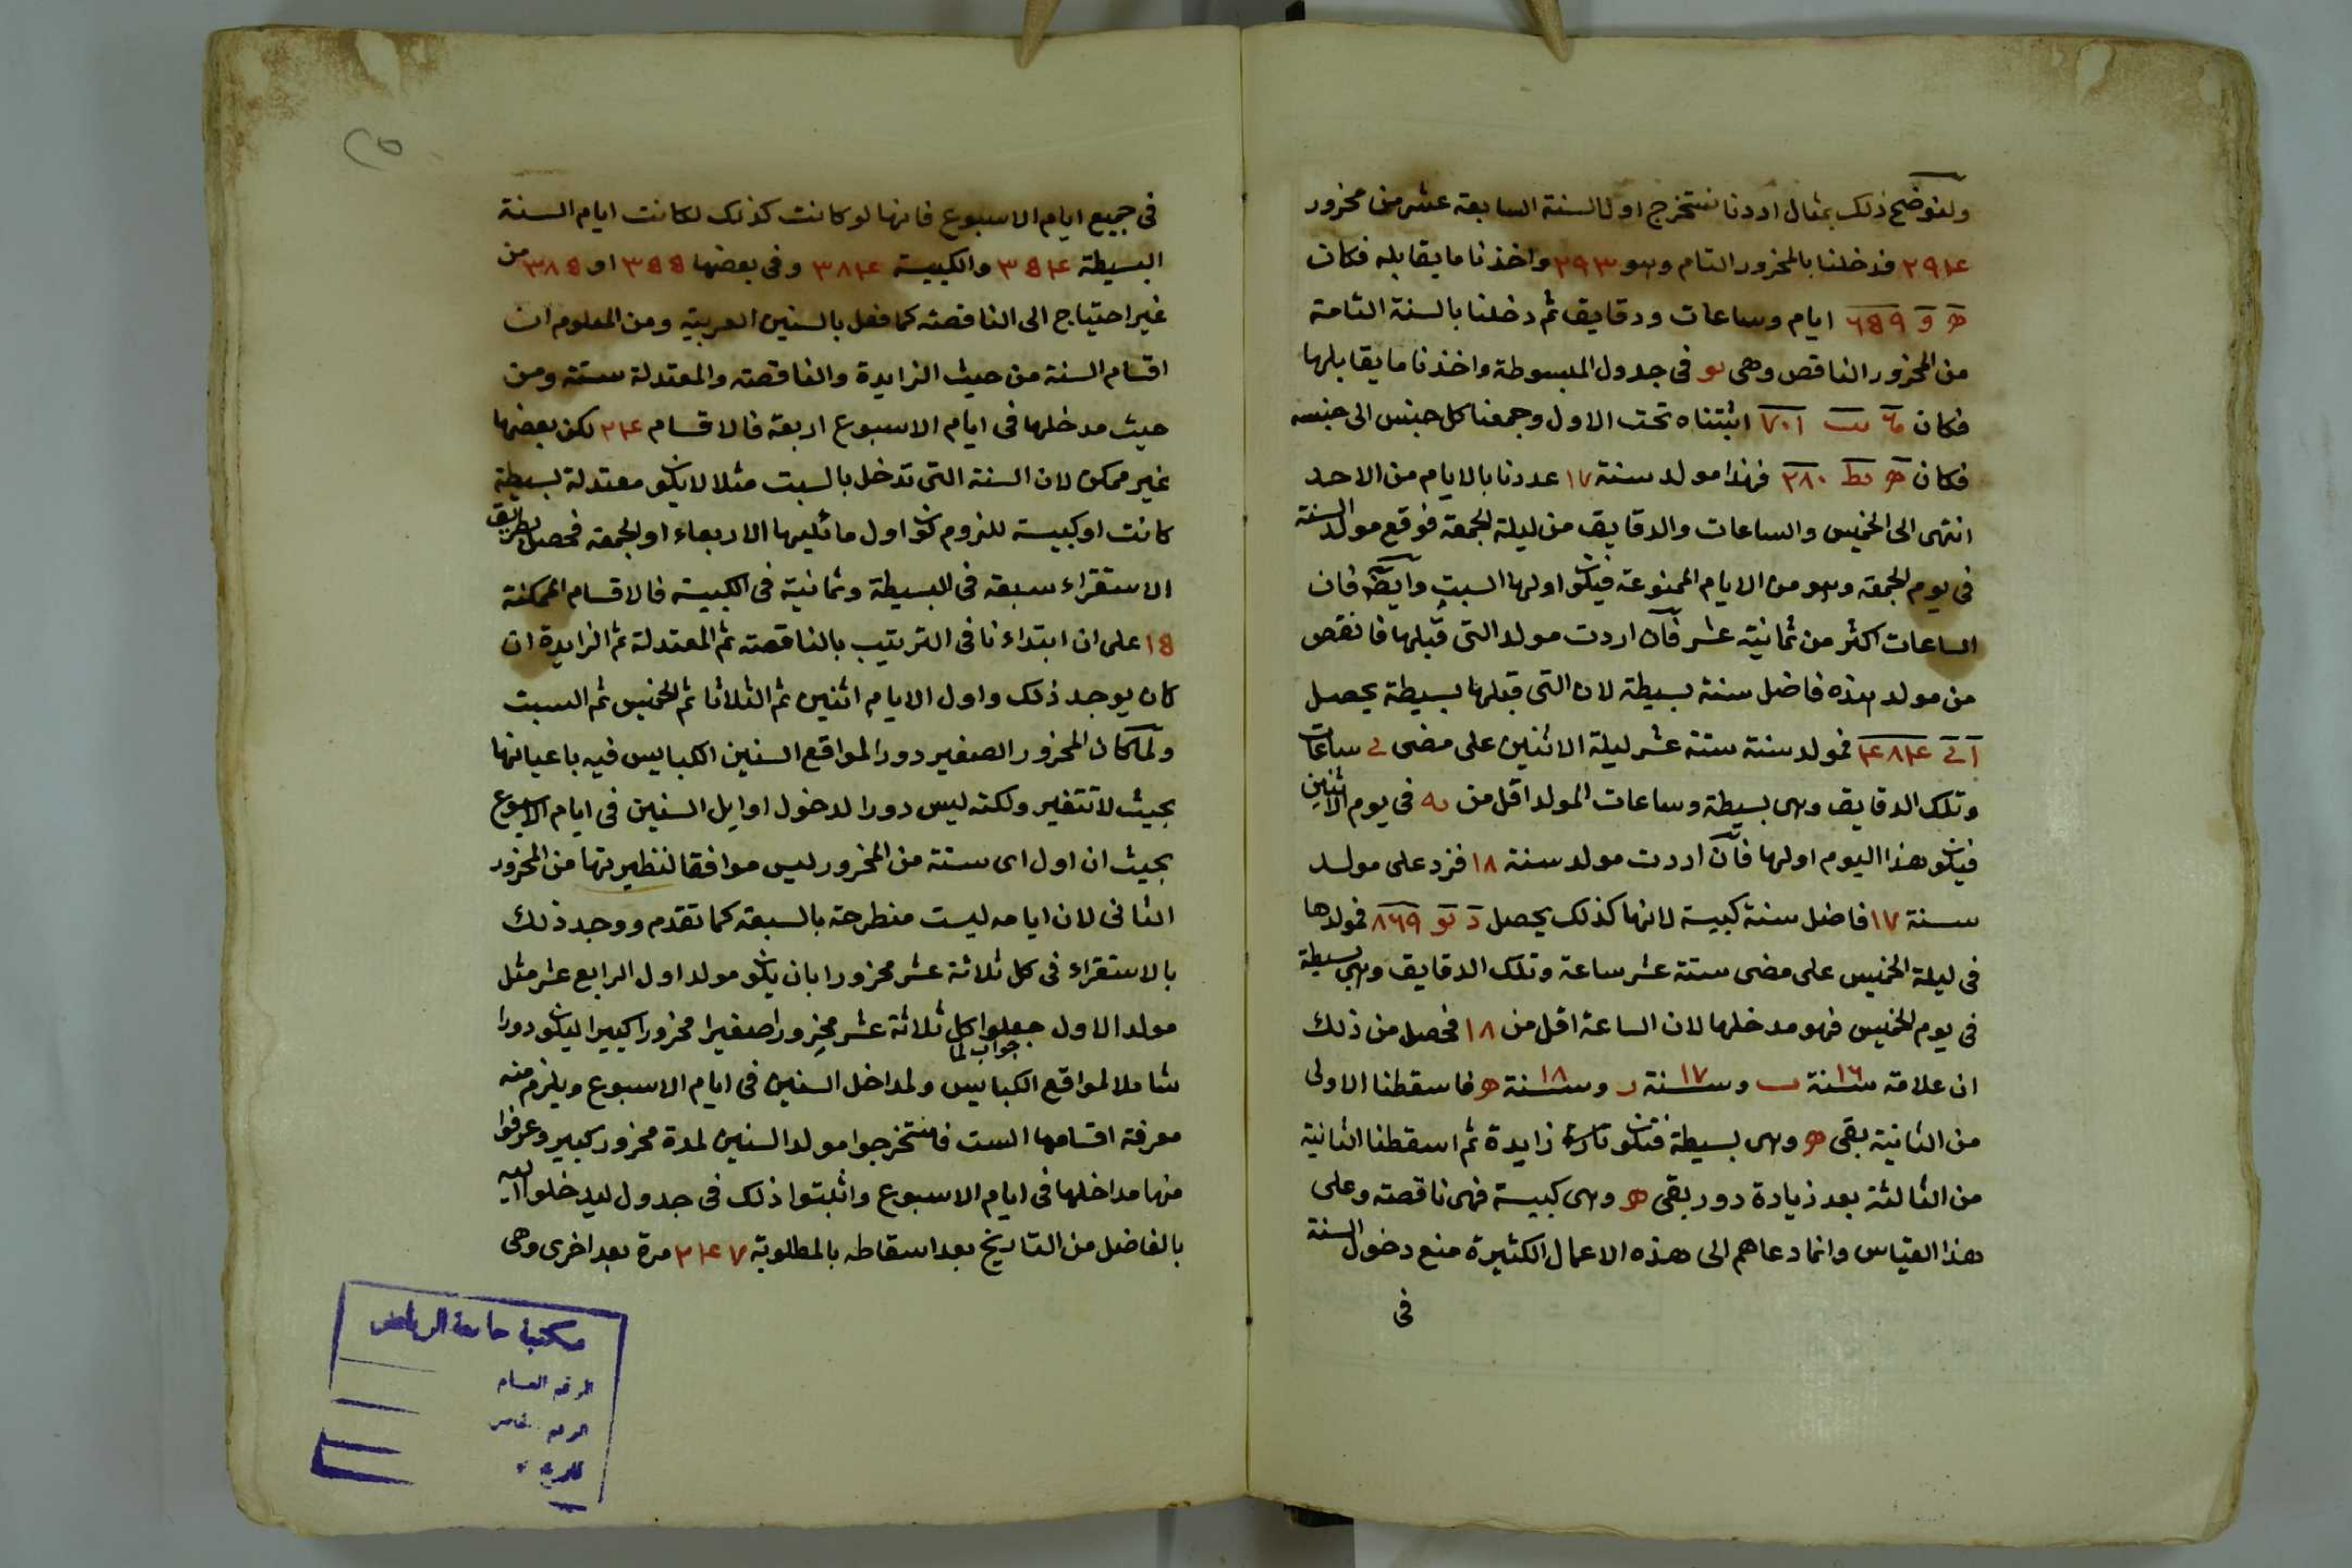 ولنوضح ذلك بمثال اردنا نستخرج اول السنة السابعة عشر من محزور
٢٩٤ فدخلنا بالمحزور التام وهو ٢٩٣ واخذنا ما يقابله فكان
ه و ٦٥٩ ايام وساعات ودقايق ثم دخلنا بالسنة التامة
من المحزور الناقص وهى يو فى جدول المبسوطة واخذنا ما يقابلها
فكان ٧٠١ اثبتناه تحت الاول وجمعنا كل جنس الى جنسه
فكان ه يط ٢٨٠ فهذا مولد سنة ١٧ عددنا بالايام من الاحد
انتهى الى الخميس والساعات والدقايق من ليلة الجمعة فوقع مولد السنة
فى يوم الجمعة وهو من الايام الممنوعة فيكون اولها السبت وايضا فان
الساعات اكثر من ثمانية عشر فان اردت مولد التى قبلها فانقص
من مولد هذه فاضل سنة بسيطة لان التى قبلها بسيطة يحصل
٤٨٤ فمولد سنة ستة عشر ليلة الاثنين على مضى ى ساعات
وتلك الدقايق وهى بسيطة وساعات المولد اقل من يه فى يوم الاثنين
فيكون هذا اليوم اولها فان اردت مولد سنة ١٨ فزد على مولد
سنة ١٧ فاضل سنة كبيسة لانها كذلك يحصل د يو ٨٦٩ فمولدها
فى ليلة الخميس على مضى ستة عشر ساعة وتلك الدقايق وهى بسيطة
فى يوم الخميس فهو مدخلها لان الساعة اقل من ١٨ فحصل من ذلك
ان علامة سنة ١٦ ب وسنة ١٧ ز وسنة ١٨ ه فاسقطنا الاولى
من الثانية بقى ه وهى بسيطة فتكون زايدة ثم اسقطنا الثانية
من الثالثة بعد زيادة دور بقى ه وهى كبيسة فهى ناقصة وعلى
هذا القياس وانما دعاهم الى هذه الاعمال الكثيرة منع دخول السنة
فى
٢٥
فى جميع ايام الاسبوع فانها لو كانت كذلك لكانت ايام السنة
البسيطة ٣٥٤ والكبيسة ٣٨٤ وفى بعضها ٣٥٥ او ٣٨٥ من
غير احتياج الى الناقصة كما فعل بالسنين العربية ومن المعلوم ان
اقسام السنة من حيث الزايدة والناقصة والمعتدلة ستة ومن
حيث مدخلها فى ايام الاسبوع اربعة فالاقسام ٢٤ لكن بعضها
غير ممكن لان السنة التى تدخل بالسبت مثلا لا يكون معتدلة بسيطة
كانت او كبيسة للزوم كون اول ما تليها الاربعاء او الجمعة فحصل بطريق
الاستقراء سبعة فى البسيطة وثمانية فى الكبيسة فالاقسام الممكنة
١٥ على ان ابتداءنا فى الترتيب بالناقصة ثم المعتدلة ثم الزايدة ان
كان يوجد ذلك واول الايام اثنين ثم الثلاثا ثم الخميس ثم السبت
ولما كان المحزور الصغير دورا لمواقع السنين الكبايس فيه باعيانها
بحيث لا تتغير ولكنه ليس دورا لدخول اوايل السنين فى ايام الاسبوع
بحيث ان اول اى سنة من المحزور ليس موافقا لنظيرتها من المحزور
الثانى لان ايامه ليست منطرحة بالسبعة كما تقدم ووجد ذلك
بالاستقراء فى كل ثلاثة عشر محزورا بان يكون مولد اول الرابع عشر مثل
مولد الاول جعلوا كل ثلاثة عشر محزورا صغيرا محزورا كبيرا ليكون دورا
جواب لما
شاملا لمواقع الكبايس ولمداخل السنين فى ايام الاسبوع ويلزم منه
معرفة اقسامها الست فاستخرجوا مولد السنين لمدة محزور كبير وعرفوا
منها مداخلها فى ايام الاسبوع واثبتوا ذلك فى جدول ليدخلوا اليه
بالفاضل من التاريخ بعد اسقاطه بالمطلوبة ٢٤٧ مرة بعد اخرى وهى
مكتبة جامعة الرياض
الرقم العام
الرقم الخاص